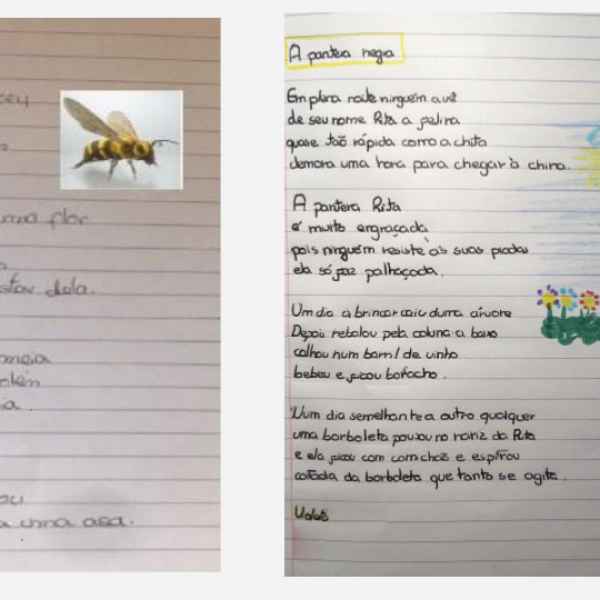 uma flor
dela.
uma asa.
A pantera negra
Em plena noite ninguém a vê
de seu nome Rita a felina
quase tão rápida como a chita
demora uma hora para chegar à china.
A pantera Rita
é muito engraçada
pois ninguém resiste às suas piadas
ela só faz palhaçada.
Um dia a brincar caiu duma árvore
Depois rebolou pela colina a baixo
calhou num barril de vinho
bebeu e ficou borracho.
Num dia semelhante a outro qualquer
uma borboleta pousou no nariz da Rita
e ela ficou com comichão e espirrou
coitada da borboleta que tanto se agita.